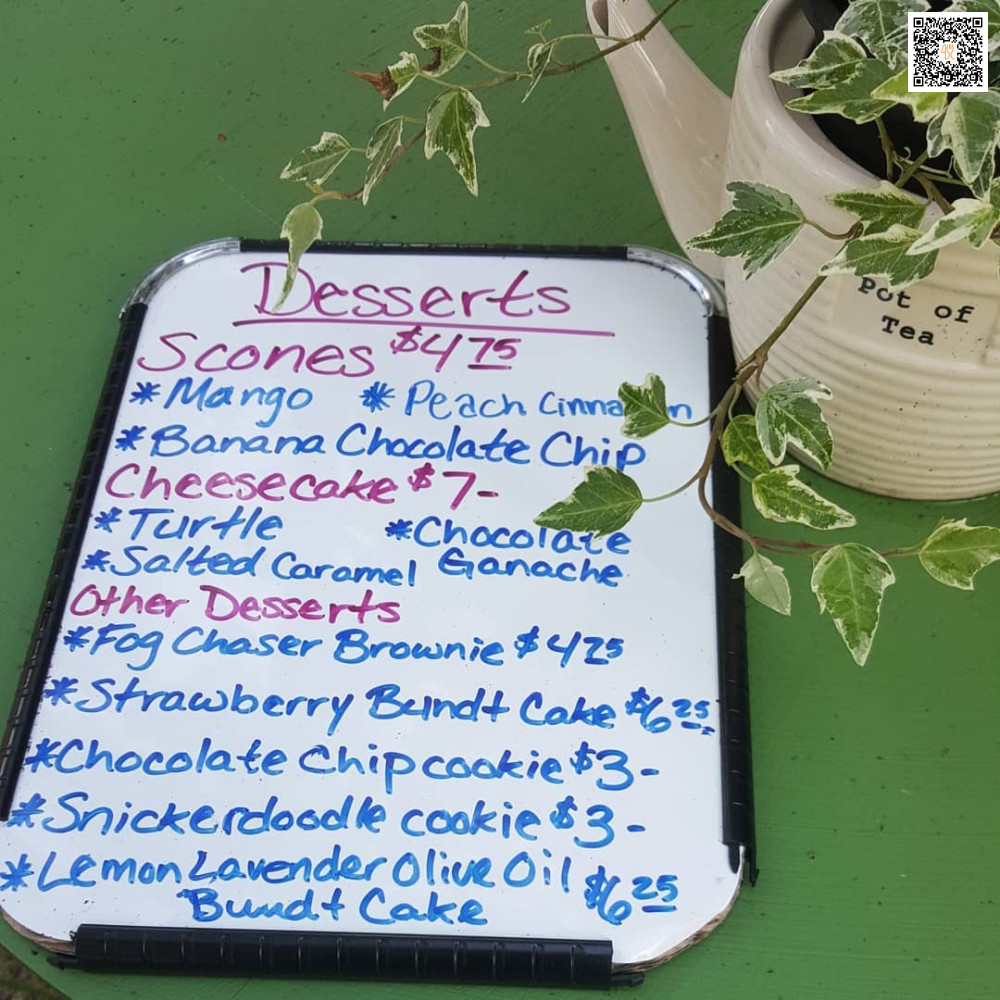 Desserts
Scones $4 75
* Mango * Peach Cinnamon
* Banana Chocolate Chip
Cheesecake $7-
* Turtle * Chocolate
* Salted Caramel Ganache
Other Desserts
* Fog Chaser Brownie $4 75
* Strawberry Bundt Cake $6 25
* Chocolate Chip cookie $3-
* Snickerdoodle cookie $3-
* Lemon Lavender Olive Oil $6 25
Bundt Cake
Pot of
Tea